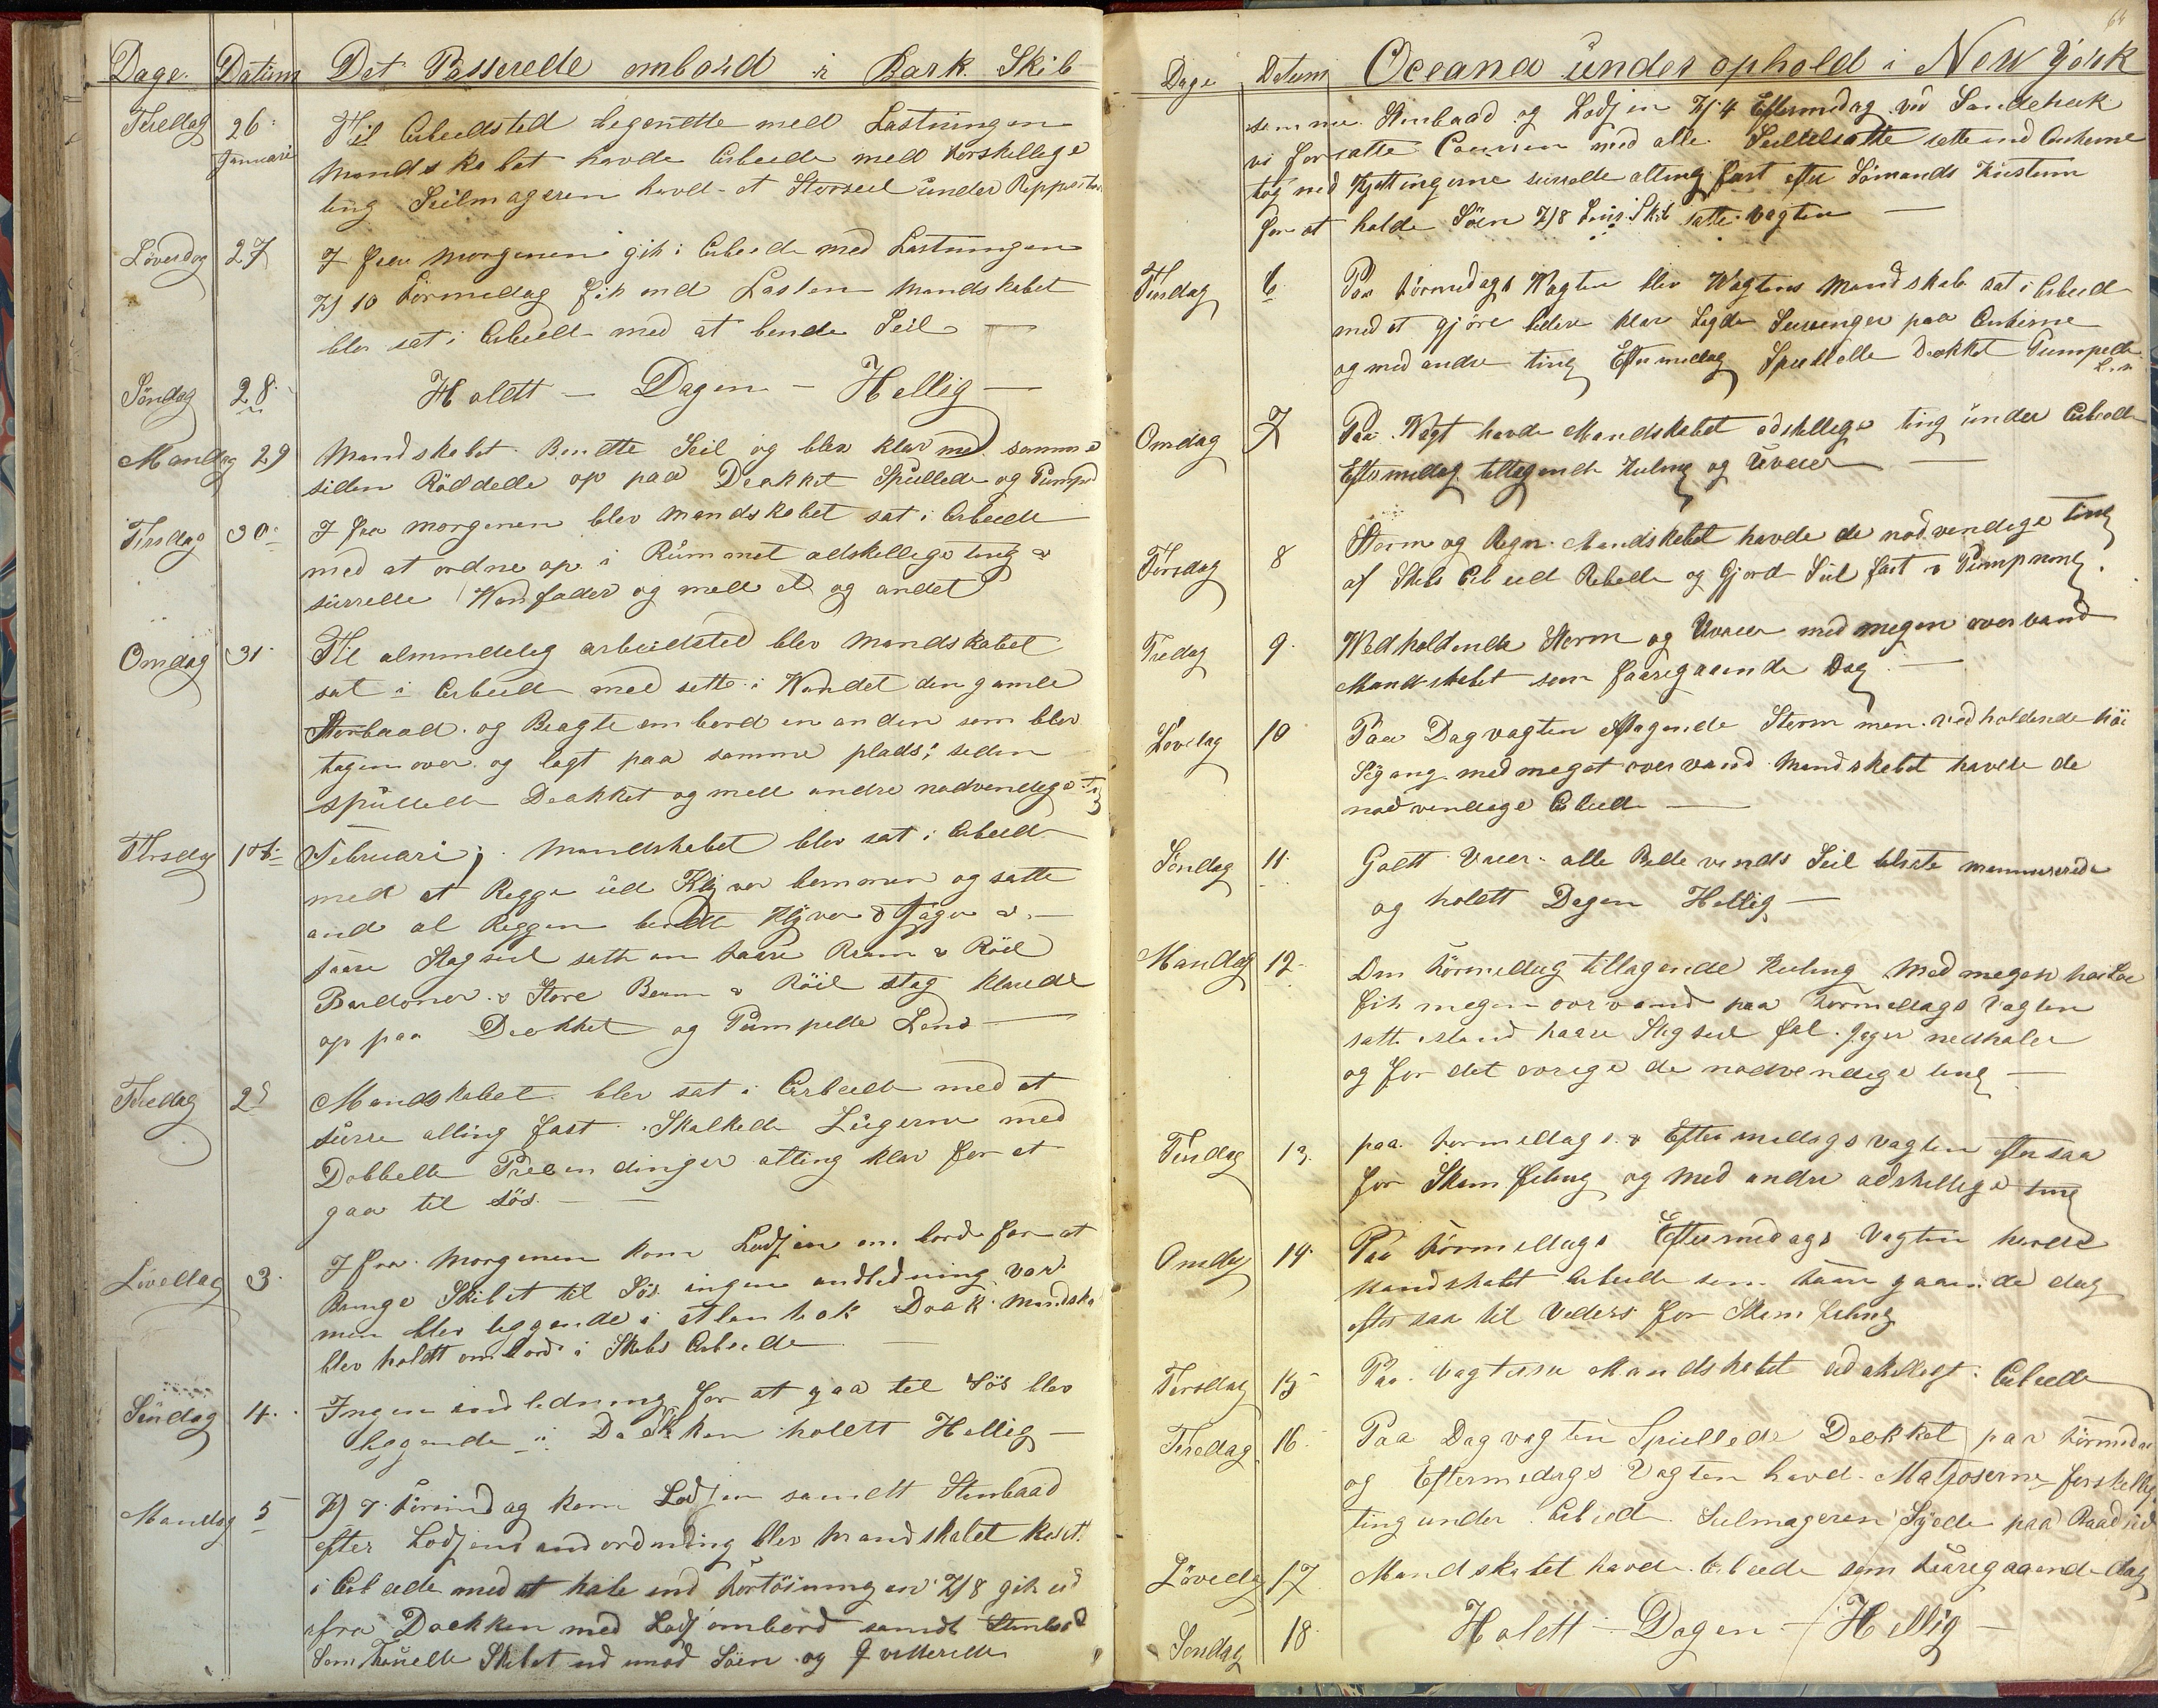 Dage. Datum Det Passerede ombord i Bark Skib
Fredag 26. Januari Til Arbeedsted begyndte med Lastningen
Mandskabet havde Arbeede med forskellige
ting Seilmageren havde et Storseil under Reppertion
Löverdag 27 I fra morgenen gik i Arbeede med Lastningen
Kl 10 Formedag fik ind Lasten Mandskabet
blev sat i Arbeede med at bende Seil
Söndag 28. Holdtt — Dagen — Hellig —
Mandag 29 Mandskabet Bendte Seil og blev klar med samme
siden Röddede op paa Deckket Spullede og Pumped
Tirsdag 30. I fra morgenen blev mandskabet sat i Arbeede
med at ordne op i Rummet adskellige ting &
surrede Wandfader og med et og andet
Omdag 31. Til almindelig arbeidsted blev Mandskabet
sat i Arbeede med sette i Wandet den gamle
Storbaad. og Bragte om bord en anden som blev
tagen over og lagt paa samme plads; seden
spullede Deckket og med andre nodvendige ting
Thrsdag 1st Februari; Mandskabet blev sat i Arbeed
med at Rigge ud Klyver bommen og satte
and al Riggen bendte Klyver & Jager &
faare Stagseil satte an faare Bram & Röil
Bardoner & Store Bram & Röil stag klarede
op paa Deckket og Pumpede Lens —
Fredag 2d Mandskabet blev sat i Arbeede med at
surre alting fast. Skalkede Lugerne med
Dobbelte Presendinger alting klar for at
gaa til Sös. —
Lövedag 3. I fra Morgenen kom Lodsen om bord for at
Bringe Skibet til Sös ingen andledning var
men blev leggende i Atlantic Dock Mandska
blev holdtt ombord i Skibs Arbeede
Söndag 4. Ingen andledning for at gaa til Sös blev
leggende i Dockken holdtt Hellig —
Mandag 5 Kl 7 Formedag kom Lodsen samdtt Stembaad
efter Lodsens andordnding blev Mandskabet
i Arbeede med at hale ind Förtöiningen Kl 8 gik ud
fra Dockken med Lods ombord samdt Stembaad
Som Touede Skibet ud imod Söen og Qvitterede
64
Dage Datum Oceana under ophold i New York
samme Stembaad og Lodsen Kl 4 Eftermedag ved Sandehuk
vi forsatte Coursen med alle Seil tilsatte sette ind Ankerne
tog ned Kjettingerne surrede alting fast efter Sömands Kustum
for at holde Söen Kl 8 Skib satte Vagten —
Tirsdag 6 Paa Förmedags Wagten blev Wagtens Mandskab sat i Arbeed
med at gjöre bedere klar Lagde Surringer paa Ankerne
og med andre ting Eftermedag Spullede Deckket Pumpede
Omdag 7 Paa Wagt havde Mandskabet adskellige ting under Arbeede
Eftermedag tiltagende Kuling og Uveier —
Törsdag 8 Storm og Regn. Mandskabet havde de nödvendige ting
af Skibs Arbeed Rebede og Gjord Seil fast & Pumpning.
Fredag 9. Wedholdende Storm og Uveier med megen overvand
Mandskabet som faaregaaende Dag. —
Lövedag 10 Paa Dagvagten aftagende Storm men vedholdende höi
Sögang med meget overvand Mandskabet havede de
nödvendige Arbeed —
Söndag 11. Godtt Veier alle Bede vinds Seil tilsate
og holdtt Dagen Hellig —
Mandag 12. Om Förmedag tiltagende Kuling Med megen höi Sö
fik megen overvand paa Förmedags Vagten
satte istand faare Stagseil fal Jager nedhaler
og for det övrige de nödvendige ting —
Tirsdag 13. paa Formedags & Eftermedags vagten eftersaa
for Skamfeling og med andre adskellige ting
Omdag 14. Paa Förmedags Eftermedags Vagten havede
Mandskabet Arbeede som faare gaaende dag
efter saa til Veders for Skamfeling
Torsdag 15 Paa Vagterne Mandskabet adskelligt Arbeede
Fredag 16. Paa Dagvagten Spullede Deckket paa Förmedag
og Eftermedags Vagten havde Matroserne forskellige
ting under Arbeede Seilmageren Syede paa Raad
Lövedag 17 Mandskabet havde Arbeede som faaregaaende dag
Söndag 18. Holdtt — Dagen — Hellig —